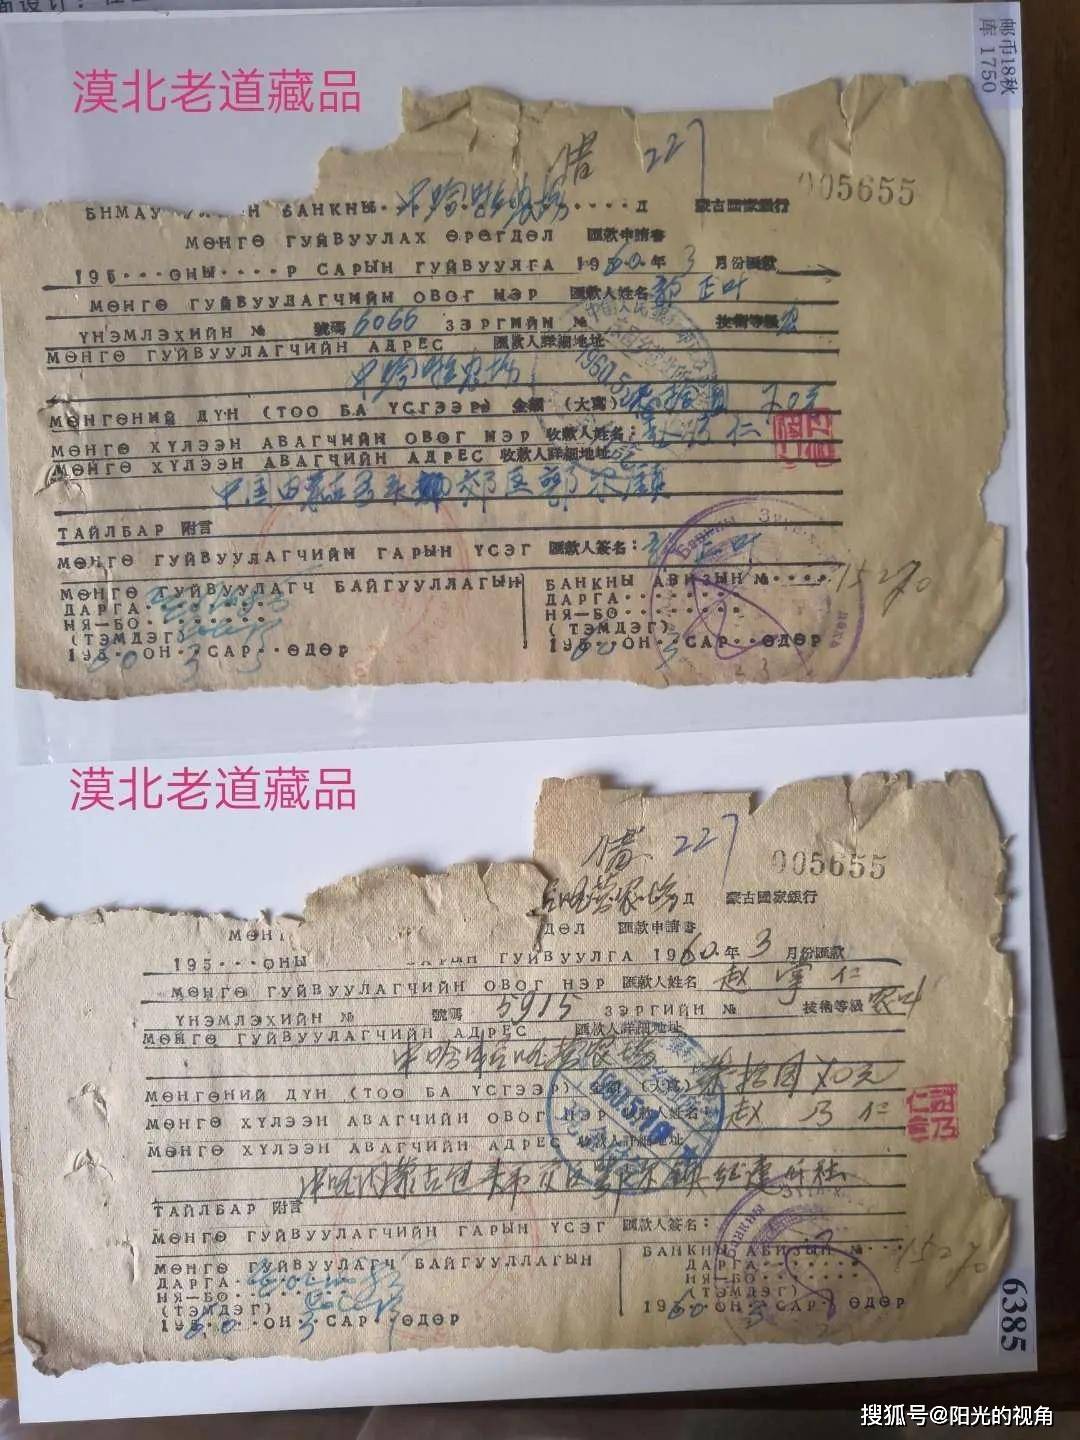 邮币18秋
库 1750
漠北老道藏品
借 227
005655
БНМАУ БАНКНЫ Д 蒙古國家銀行
МӨНГӨ ГУЙВУУЛАХ ӨРӨГДӨЛ 匯款申請書
195・・・ӨНЫ・・・・Р САРЫН ГУЙВУУЛГА 1960年 3 月份匯款
МӨНГӨ ГУЙВУУЛАГЧИЙН ОВОГ НЭР 匯款人姓名 正叶
ҮНЭМЛЭХИЙН № 號碼 6066 ЗЭРГИЙН № 技術等級 农
МӨНГӨ ГУЙВУУЛАГЧИЙН АДРЕС 匯款人詳細地址
中哈 农场
МӨНГӨНИЙ ДҮН (ТОО БА ҮСГЭЭР) 金額 (大寫) 柒拾 70元
МӨНГӨ ХҮЛЭЭН АВАГЧИЙН ОВОГ НЭР 收款人姓名: 仁
МӨНГӨ ХҮЛЭЭН АВАГЧИЙН АДРЕС 收款人詳細地址
中国内蒙古 郊区鄂尔 镇
ТАЙЛБАР 附言
МӨНГӨ ГУЙВУУЛАГЧИЙН ГАРЫН ҮСЭГ 匯款人簽名: 正叶
МӨНГӨ ГУЙВУУЛАГЧ БАЙГУУЛЛАГЫН
ДАРГА
НЯ—БО
(ТЭМДЭГ)
1960 ОН 3 САР 3 ӨДӨР
БАНКНЫ АВИЗЫН № 15270
ДАРГА
НЯ—БО
(ТЭМДЭГ)
1960 ОН САР ӨДӨР
1960.5
Банкны
漠北老道藏品
借 227
005655
农场 Д 蒙古國家銀行
МӨН ДӨЛ 匯款申請書
195・・・ӨНЫ АРЫН ГУЙВУУЛГА 1960年 3 月份匯款
МӨНГӨ ГУЙВУУЛАГЧИЙН ОВОГ НЭР 匯款人姓名 赵 掌 仁
ҮНЭМЛЭХИЙН № 號碼 5915 ЗЭРГИЙН № 技術等級 农
МӨНГӨ ГУЙВУУЛАГЧИЙН АДРЕС 匯款人詳細地址
中哈 农场
МӨНГӨНИЙ ДҮН (ТОО БА ҮСГЭЭР) (大寫) 柒拾 70元
МӨНГӨ ХҮЛЭЭН АВАГЧИЙН ОВОГ НЭР 收款人姓名: 赵 乃 仁
МӨНГӨ ХҮЛЭЭН АВАГЧИЙН АДРЕС 收款人詳細地址
内蒙古包头市 区鄂尔 镇
ТАЙЛБАР 附言
МӨНГӨ ГУЙВУУЛАГЧИЙН ГАРЫН ҮСЭГ 匯款人簽名:
МӨНГӨ ГУЙВУУЛАГЧ БАЙГУУЛЛАГЫН
ДАРГА
НЯ—БО
(ТЭМДЭГ)
1960 ОН 3 САР ӨДӨР
БАНКНЫ АВИЗЫН № 15270
ДАРГА
НЯ—БО
(ТЭМДЭГ)
1960 ОН 3 САР ӨДӨР
Банкны
6385
搜狐号@阳光的视角